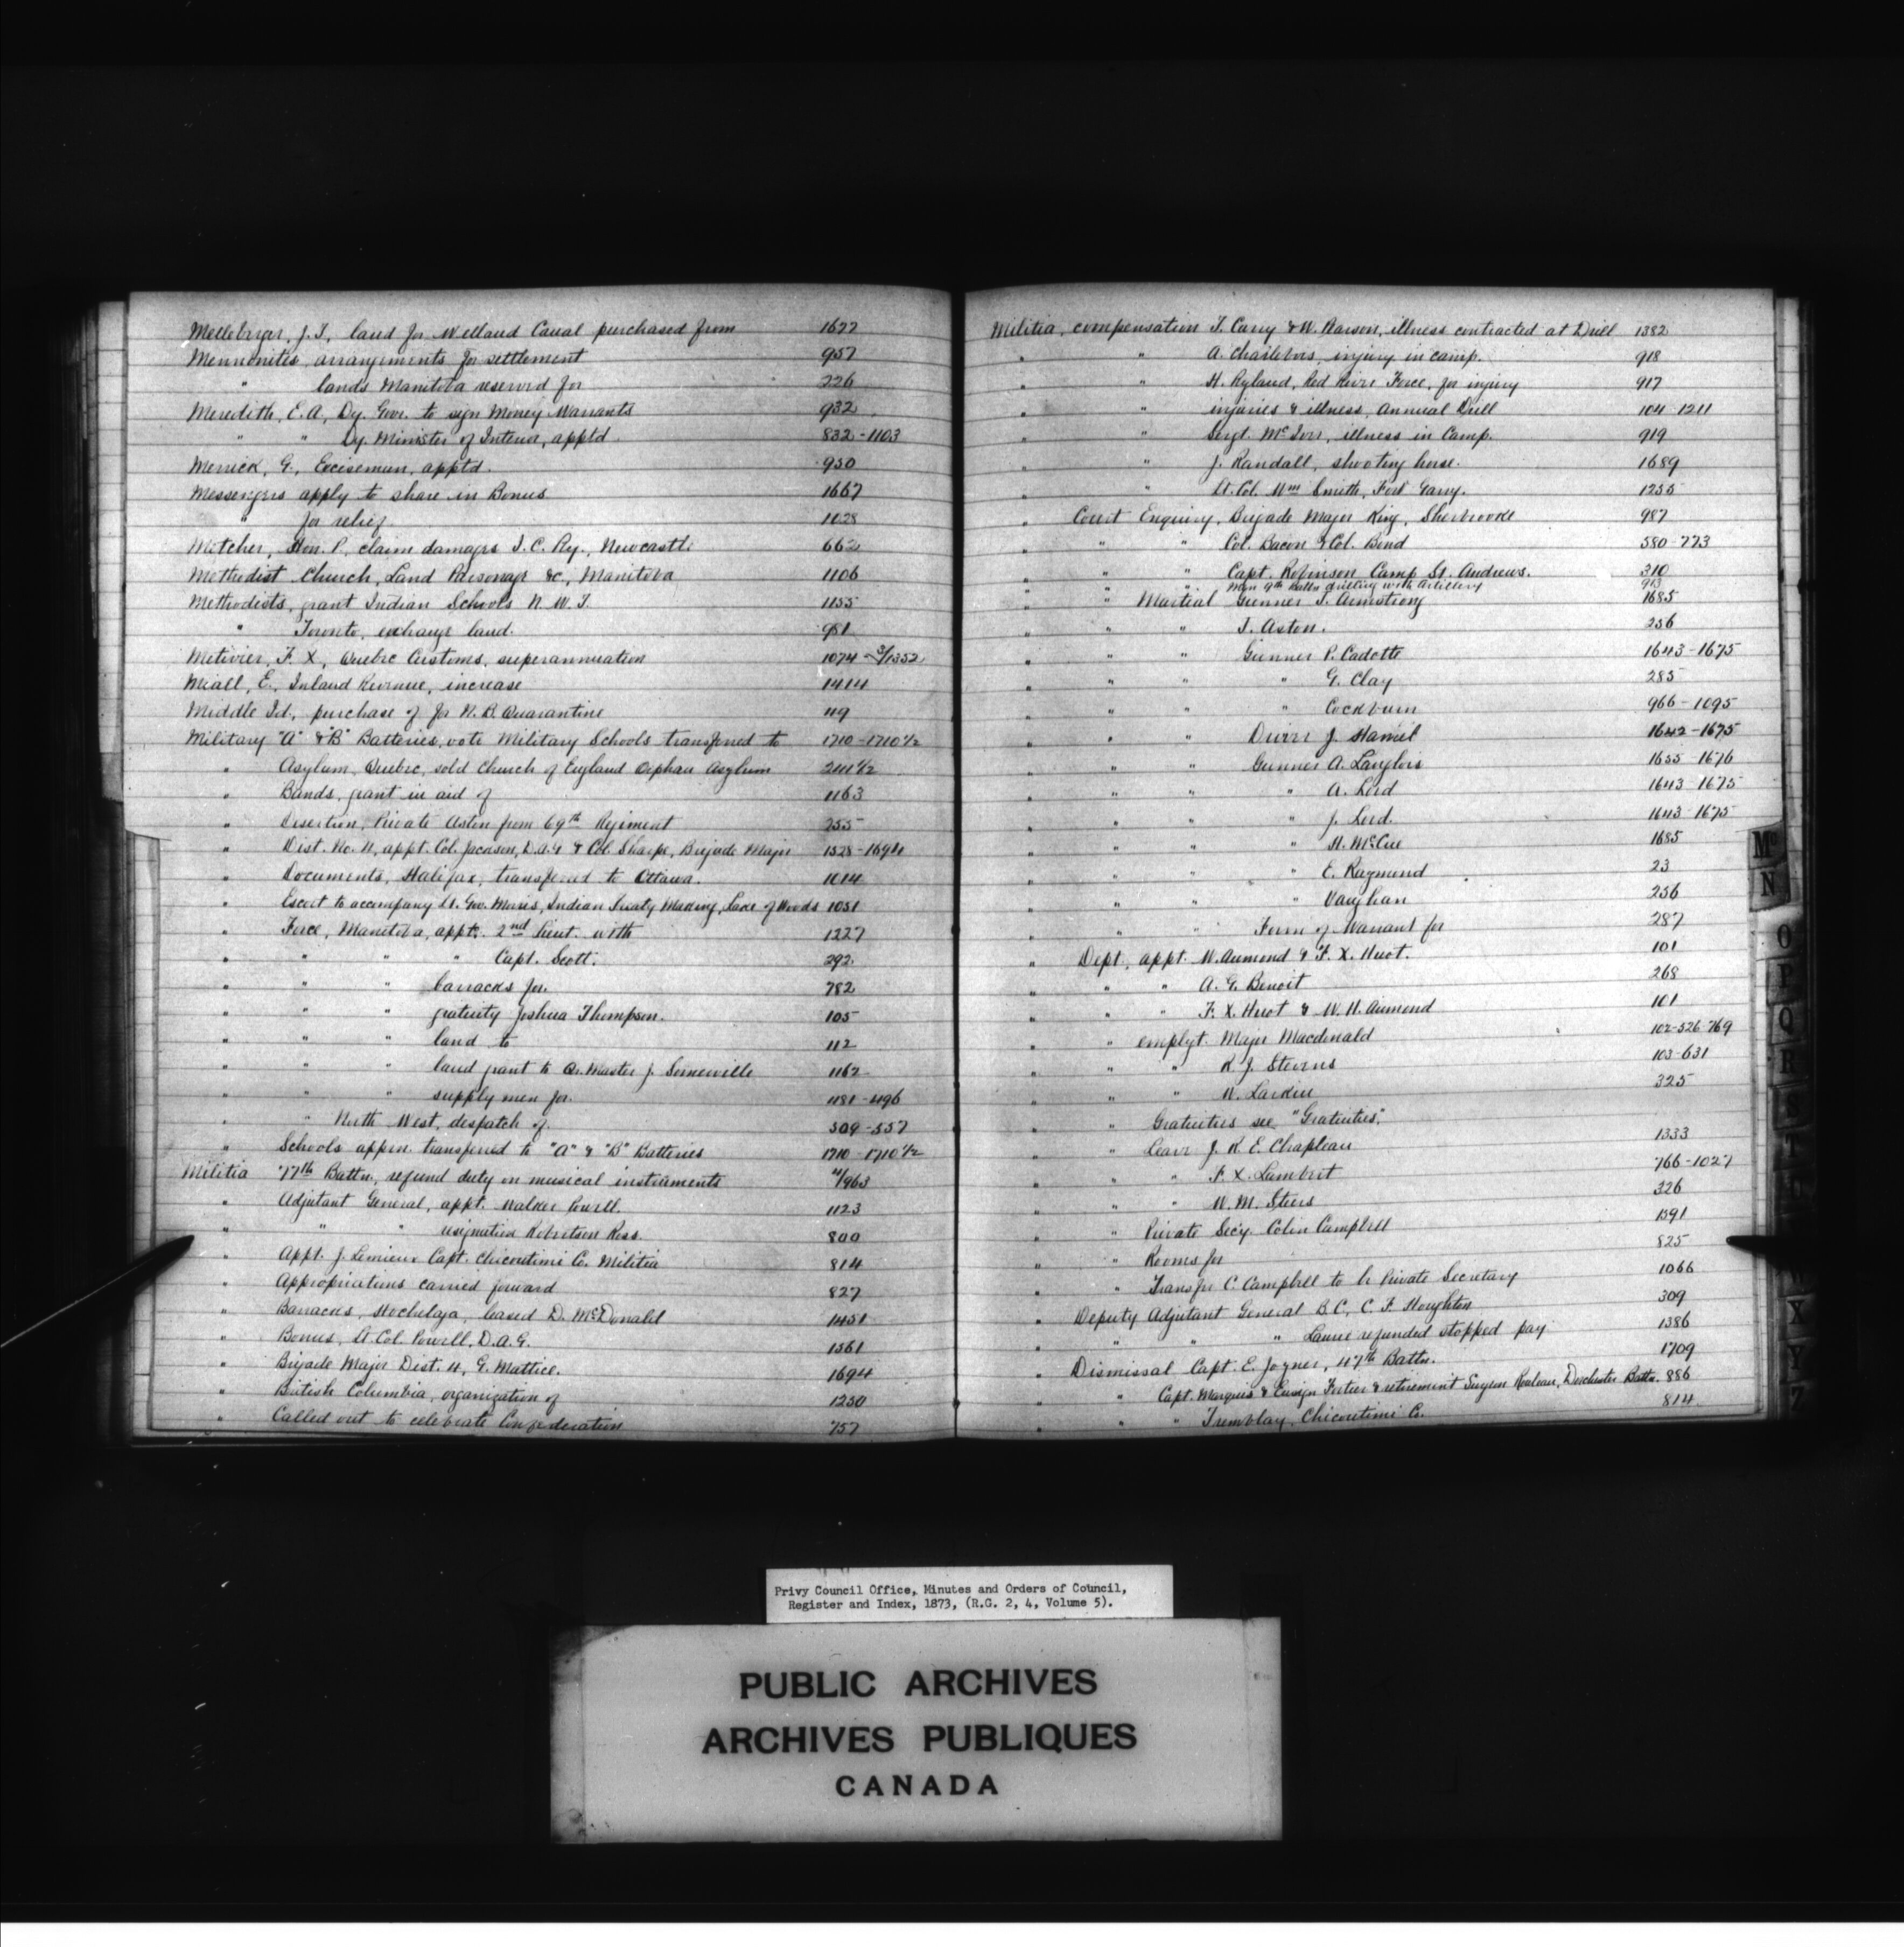 J. T., land for Welland Canal purchased from 1677
Mennonites, arrangements for settlement 957
" lands Manitoba reserved for 226
Meredith, E. A., Dy. Govr. to sign Money Warrants 932
" " Dy. Minister of Interior, apptd. 832-1103
Merrick, G., Exciseman, apptd. 950
Messengers apply to share in Bonus 1667
" for relief 1028
Mitchel, Hon. P., claim damages I. C. Ry., Newcastle 662
Methodist Church, Land Parsonage &c, Manitoba 1106
Methodists, grant Indian Schools N. W. T. 1155
" Toronto, exchange land. 981
Metivier, F. X., Quebec Customs, superannuation 1074-3/1352
Miall, E., Inland Revenue, increase 1414
Middle Id., purchase of for N. B. Quarantine 49
Military "A" & "B" Batteries, vote Military Schools transferred to 1710-1710 1/2
" Asylum, Quebec, sold Church of England Orphan Asylum 241 1/2
" Bands, grant in aid of 1163
" Desertion, Private Aston from 69th Regiment 255
" Dist. No. 11, appt. Col. Jackson, D.A.G & Col. Sharpe, Brigade Major 1528-1694
" Documents, Halifax, transferred to Ottawa. 1014
" Escort to accompany Lt. Gov. Morris, Indian Treaty Making, Lake of Woods 1051
" Force, Manitoba, appt. 2nd Lieut. 1227
" " " " Capt. Scott. 292
" " " barracks for. 782
" " " gratuity Joshua Thompson. 105
" " " land to 112
" " " land grant to Qr. Master J. Somerville 1162
" " " supply men for. 1181-496
" " North West, despatch of. 509-557
" Schools appn. transferred to "A" & "B" Batteries 1710-1710 1/2
Militia 77th Battn., refund duty on musical instruments 4/963
" Adjutant General, appt. Walker Powell. 1123
" " " resignation Robertson Ross. 800
" Appt. J. Lemieux Capt. Chicoutimi Co. Militia 814
" Appropriations carried forward 827
" Barracks, Hochelaga, leased D. McDonald 1451
" Bonus, Lt. Col. Powell, D.A.G. 1361
" Brigade Major Dist. 4, G. Mattice. 1694
" British Columbia, organization of 1250
" Called out to celebrate Confederation 757
Militia, compensation T. Curry & W. Parson, illness contracted at Drill 1382
" " A. Charlebois, injury in camp. 918
" " H. Ryland, Red River Force, for injury 917
" " injuries & illness, Annual Drill 104-1211
" " Sergt. McIvor, illness in Camp. 919
" " J. Randall, shooting horse. 1689
" " Lt. Col. Wm Smith, Fort Garry. 1255
" Court Enquiry, Brigade Major King, Sherbrooke 987
" " " Col. Bacon & Col. Bond 580-773
" " " Capt. Robinson Camp St. Andrews. 310
" " " Men 9th Battn drilling with Artillery 913
" " Martial Gunner T. Armstrong 1685
" " " T. Aston. 256
" " " Gunner P. Cadotte 1643-1675
" " " " G. Clay 285
" " " " Cockburn 966-1095
" " " Driver J. Hamel 1642-1675
" " " Gunner A. Langlois 1655-1676
" " " " A. Lord 1643-1675
" " " " J. Lord. 1643-1675
" " " " H. McCue 1685
" " " " E. Raymond 23
" " " " Vaughan 256
" " " Form of Warrant for 287
" Dept., appt. W. Aumond & F. X. Huot. 101
" " " A. G. Benoit 268
" " " F. X. Huot & W. H. Aumond 101
" " emplyt. Major Macdonald 102-526-769
" " " K. J. Stevens 103-631
" " " W. Larkin 325
" " Gratuities see "Gratuities".
" " Leave J. K. E. Chapleau 1333
" " " F. X. Lambert 766-1027
" " " W. M. Steers 326
" " Private Secy. Colin Campbell 1391
" " Rooms for 825
" " Transfer C. Campbell to be Private Secretary 1066
" Deputy Adjutant General B. C., C. F. Houghton 309
" " " " Laurie refunded stopped pay 1386
" Dismissal Capt. E. Joyner, 47th Battn. 1709
" " Capt. Marquis & Ensign Fortier & retirement Surgeon Rouleau, Dorchester Battn. 886
" " " Tremblay, Chicoutimi Co. 814
Mc
N
O
P
Q
R
S
T
X
Y
Z
Privy Council Office, Minutes and Orders of Council,
Register and Index, 1873, (R.G. 2, 4, Volume 5).
PUBLIC ARCHIVES
ARCHIVES PUBLIQUES
CANADA